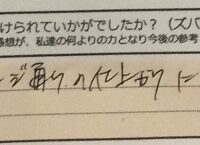 けられていかがでしたか？（ズバ
感想が、私達の何よりの力となり今後の参考
ジ通りの仕上がりに